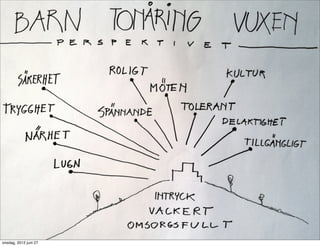 BARN TONÅRING VUXEN
PERSPEKTIVET
SÄKERHET
ROLIGT
MÖTEN
KULTUR
TRYGGHET
SPÄNNANDE
TOLERANT
DELAKTIGHET
NÄRHET
TILLGÄNGLIGT
LUGN
INTRYCK
VACKERT
OMSORGSFULLT
onsdag, 2012 juni 27